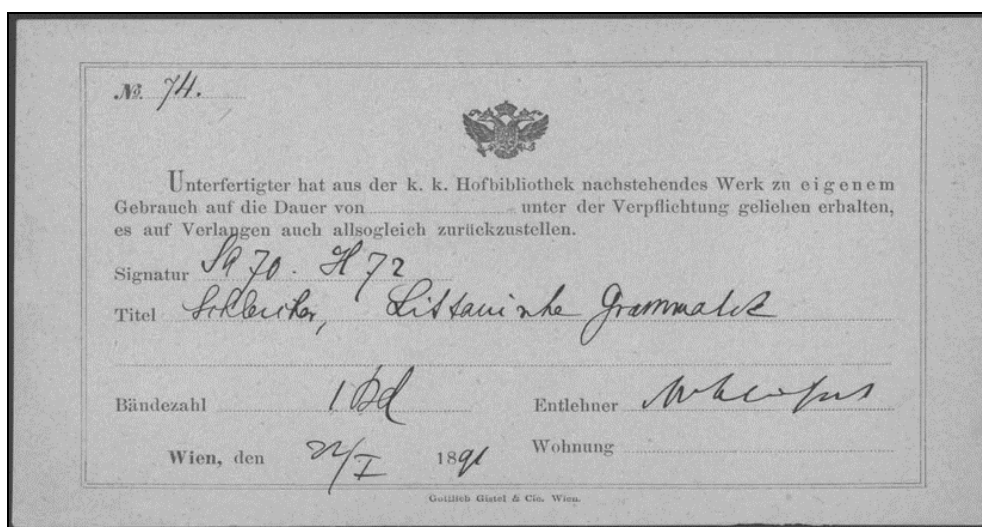 №. 74.
Unterfertigter hat aus der k. k. Hofbibliothek nachstehendes Werk zu eigenem
Gebrauch auf die Dauer von unter der Verpflichtung geliehen erhalten,
es auf Verlangen auch allsogleich zurückzustellen.
Signatur SA 70. H 72
Titel Schleicher, Littauische Grammatik
Bändezahl 1 Bd Entlehner
Wien, den 22/I 1891 Wohnung
Gottlieb Gistel & Cie. Wien.